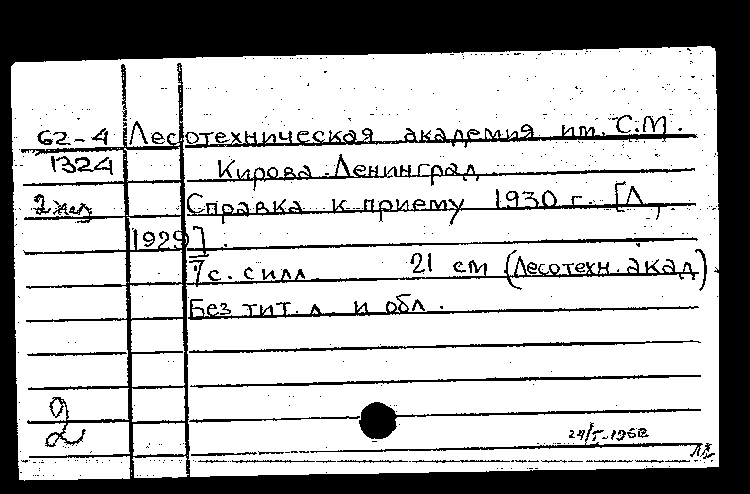 62-4 Лесотехническая академия им. С.М.
1324 Кирова. Ленинград
2 экз Справка к приему 1930 г. [Л.,
1929].
7 с. с илл. 21 см (Лесотехн. акад).
Без тит. л. и обл.
2